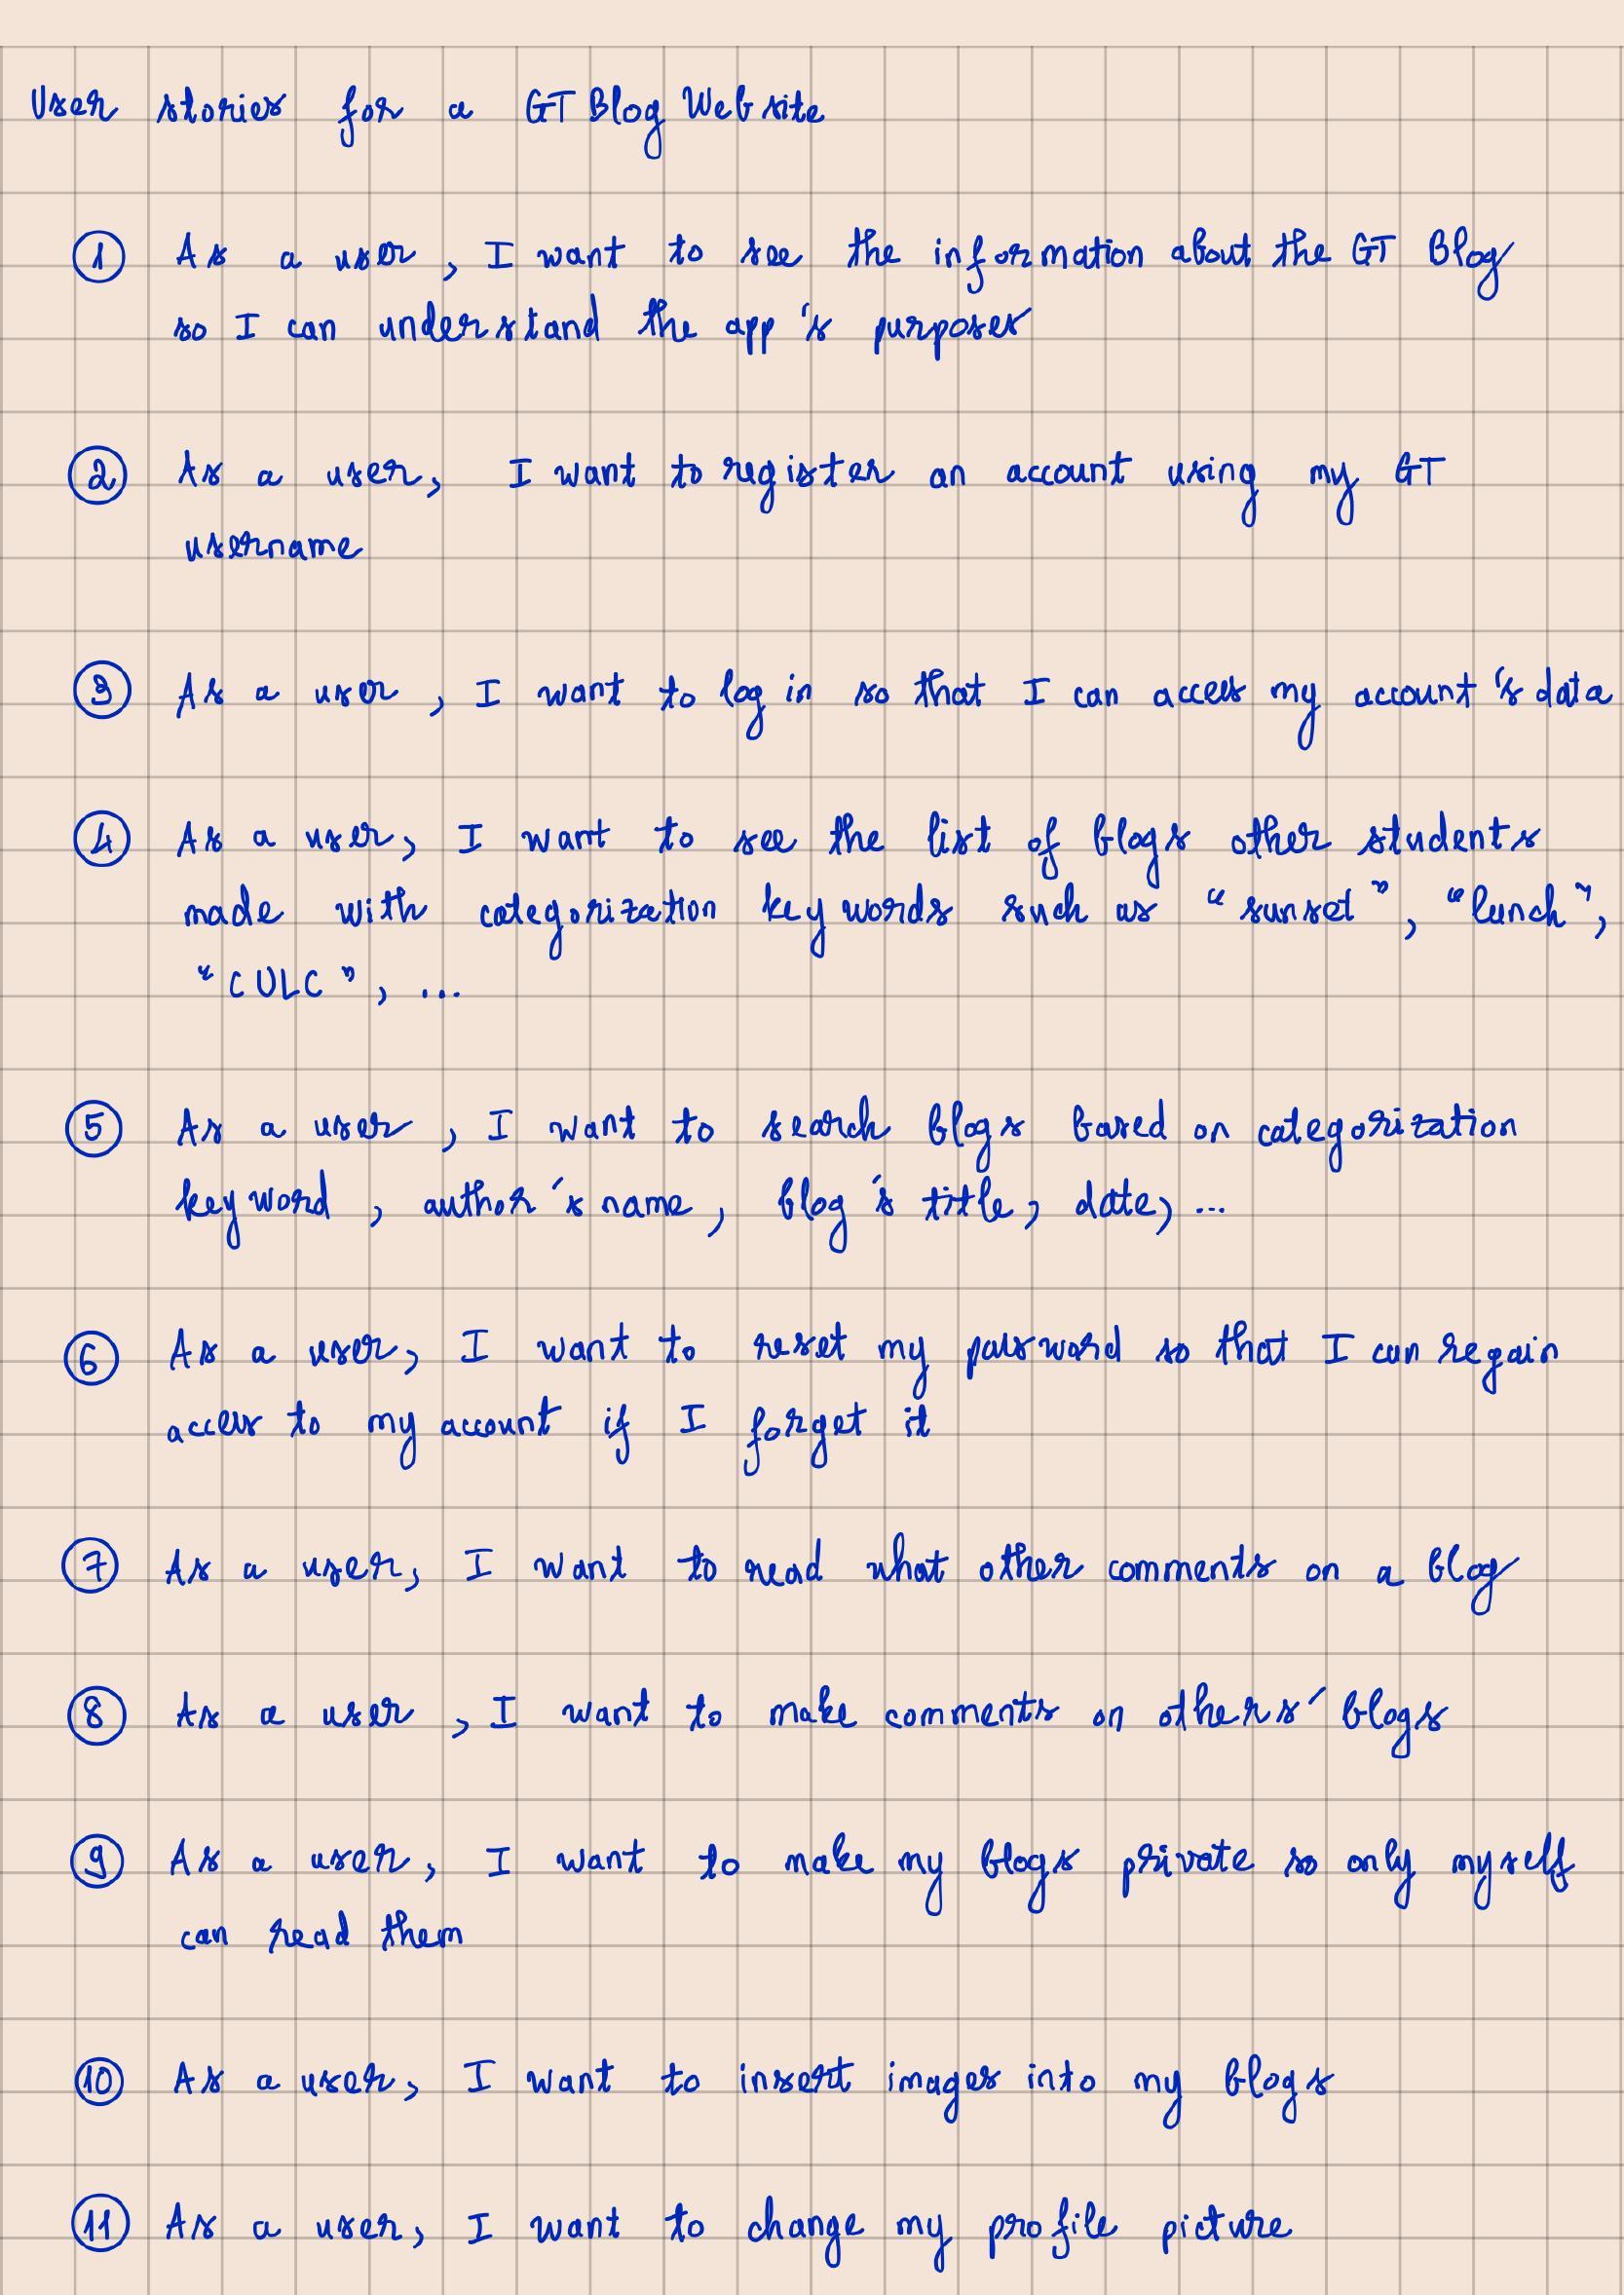 User stories for a GT Blog Website
① As a user, I want to see the information about the GT Blog
so I can understand the app's purposes
② As a user, I want to register an account using my GT
username
③ As a user, I want to log in so that I can access my account's data
④ As a user, I want to see the list of blogs other students
made with categorization keywords such as "sunset", "lunch",
"CULC", ...
⑤ As a user, I want to search blogs based on categorization
keyword, author's name, blog's title, date, ...
⑥ As a user, I want to reset my password so that I can regain
access to my account if I forget it
⑦ As a user, I want to read what other comments on a blog
⑧ As a user, I want to make comments on others' blogs
⑨ As a user, I want to make my blogs private so only myself
can read them
⑩ As a user, I want to insert images into my blogs
⑪ As a user, I want to change my profile picture